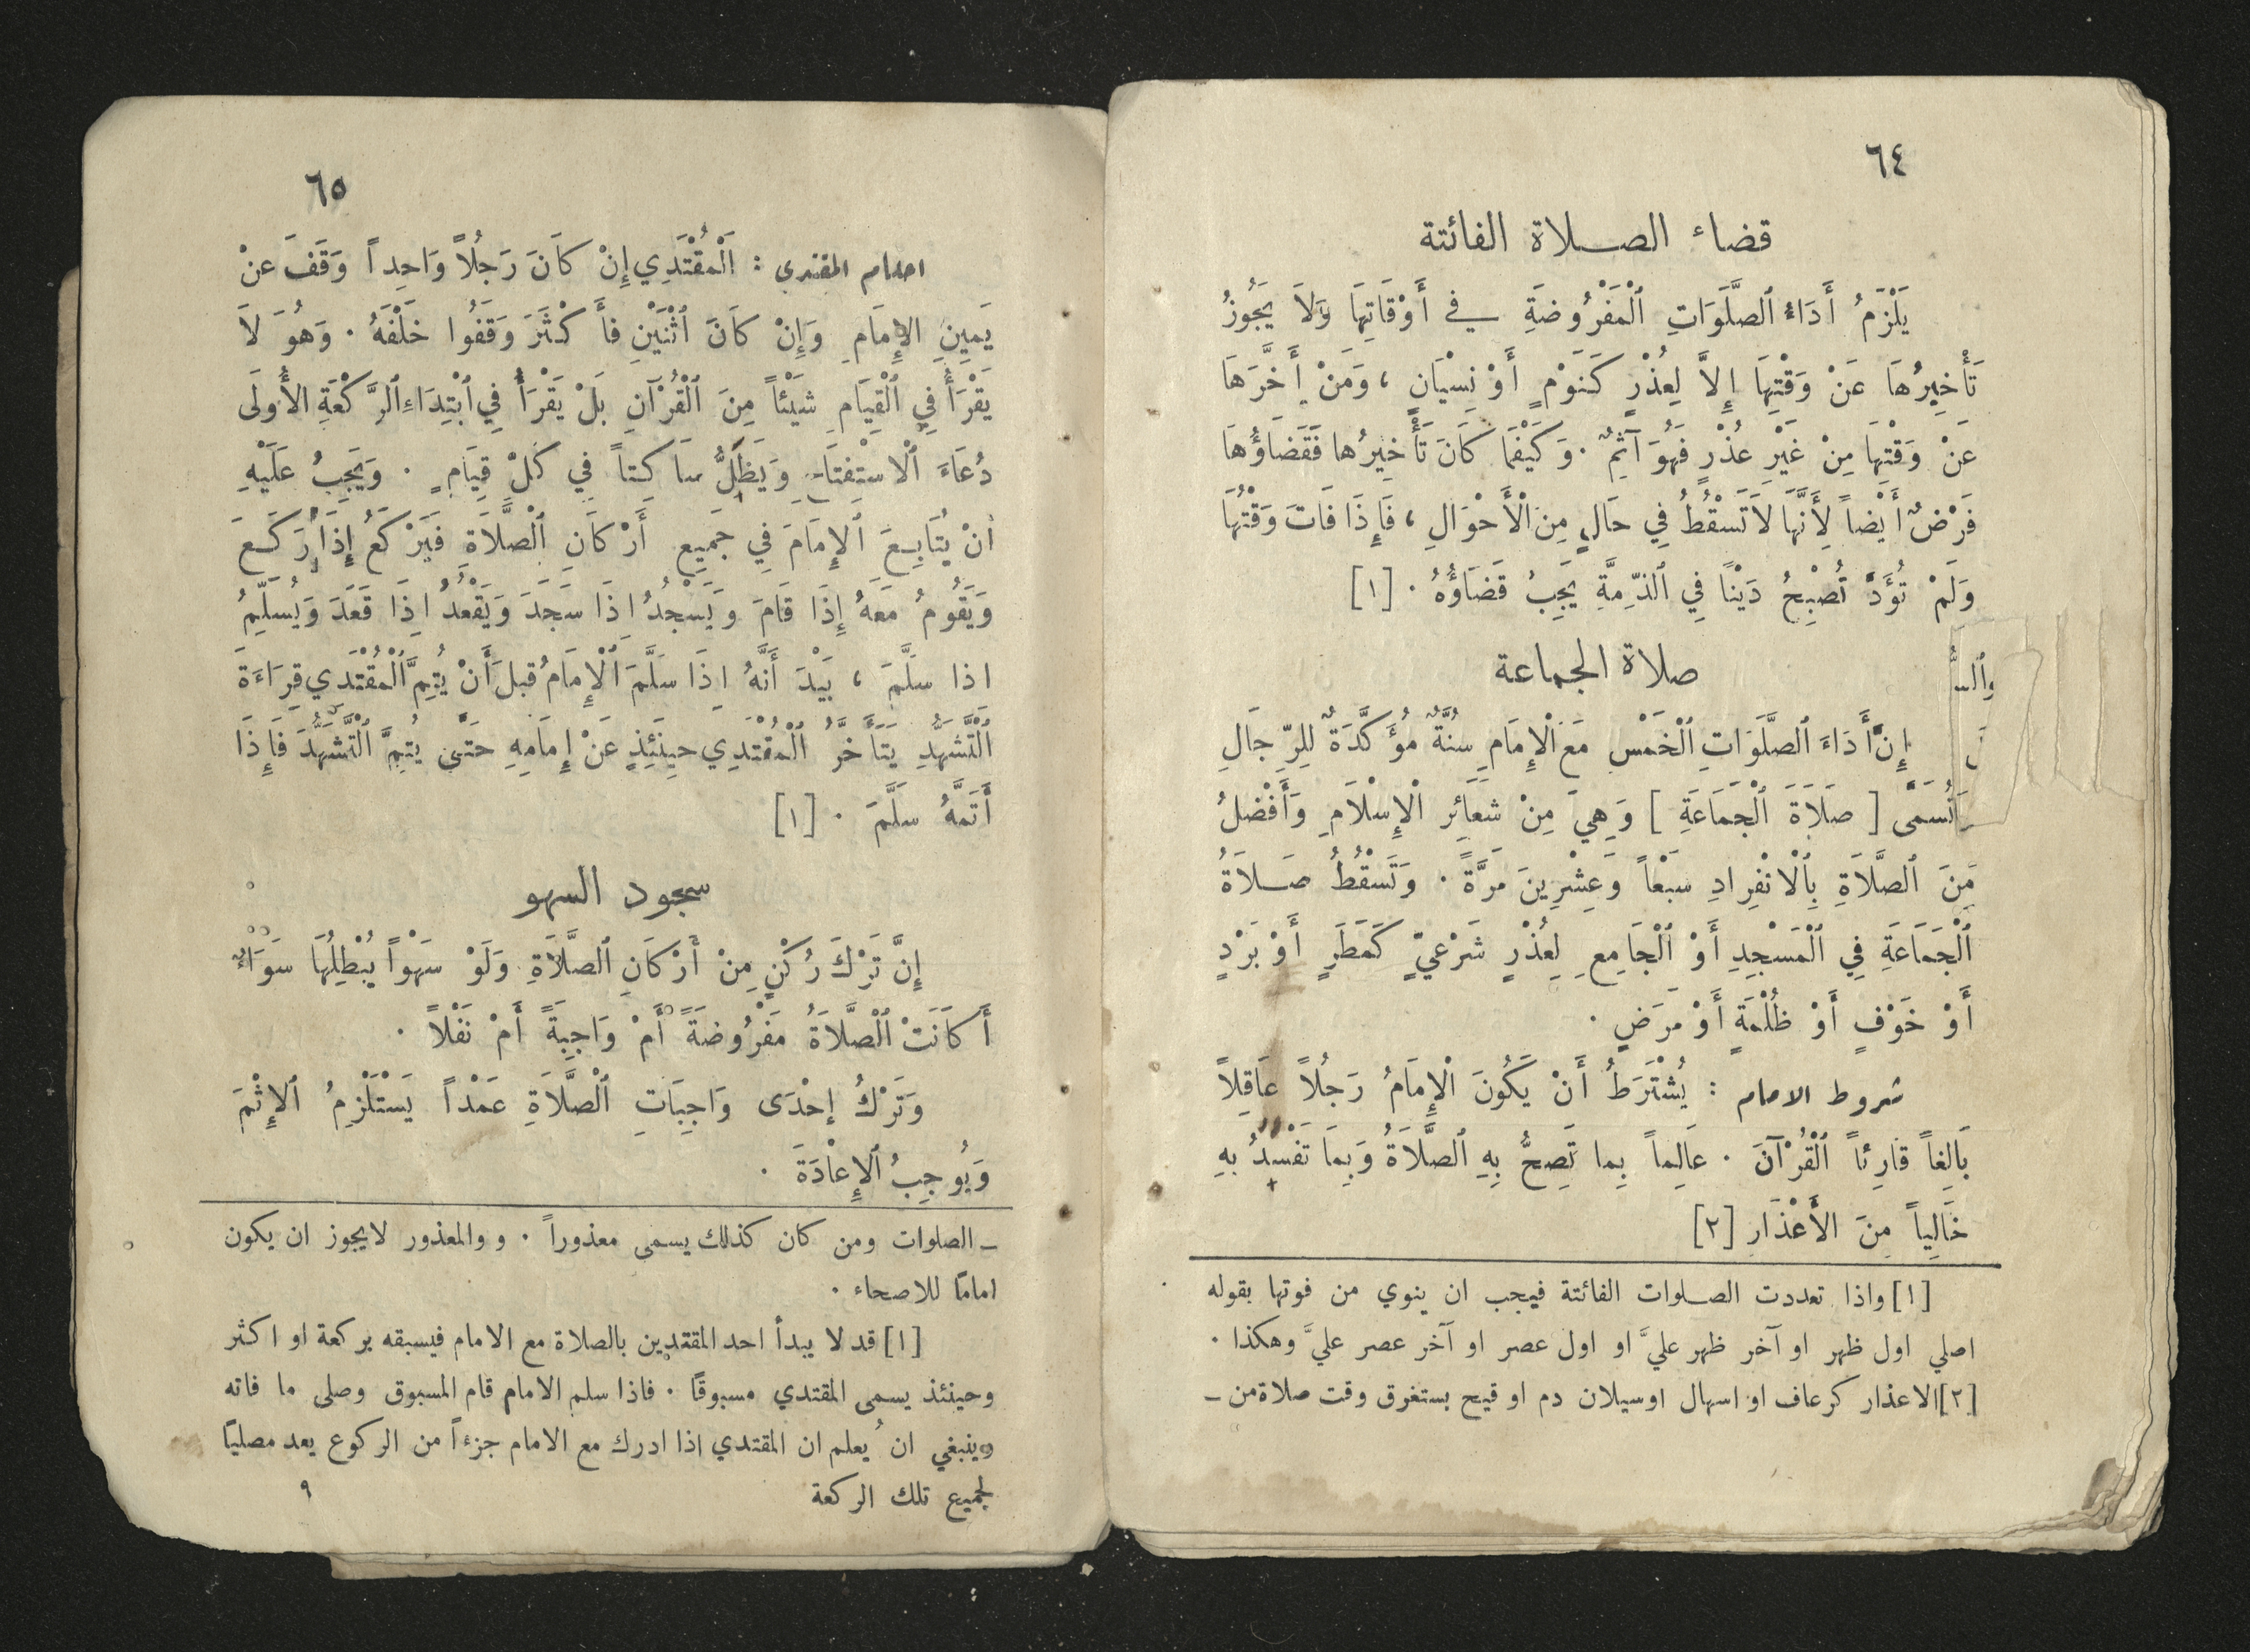 ٦٤
قضاء الصـلاة الفائتة
يَلْزَمُ أَدَاءُ ٱلصَّلَوَاتِ ٱلْمَفْرُوضَةِ في أَوْقَاتِهَا وَلاَ يَجُوزُ
تَأْخِيرُهَا عَنْ وَقْتِهَا إِلاَّ لِعُذْرٍ كَنَوْمٍ أَوْ نِسْيَانٍ ، وَمَنْ أَخَّرَهَا
عَنْ وَقْتِهَا مِنْ غَيْرِ عُذْرٍ فَهُوَ آثِمٌ . وَكَيْفَمَا كَانَ تَأْخِيرُها فَقَضَاؤُهَا
فَرْضٌ أَيْضاً لِأَنَّهَا لاَ تَسْقُطُ فِي حَالٍ مِنَ ٱلْأَحْوَالِ ، فَإِذَا فَاتَ وَقْتُهَا
وَلَمْ تُؤَدَّ تُصْبِحُ دَيْنًا فِي ٱلذِّمَّةِ يَجِبُ قَضَاؤُهُ . [١]
صلاة الجماعة
إِنَّ أَدَاءَ ٱلصَّلَوَاتِ ٱلْخَمْسِ مَعَ ٱلْإِمَامِ سُنَّةٌ مُؤَكَّدَةٌ لِلرِّجَالِ
وَتُسَمَّى [ صَلاَةَ ٱلْجَمَاعَةِ ] وَهِيَ مِنْ شَعَائِرِ ٱلْإِسْلاَمِ وَأَفْضَلُ
مِنَ ٱلصَّلاَةِ بِٱلْانْفِرَادِ سَبْعاً وَعِشْرِينَ مَرَّةً . وَتَسْقُطُ صَـلاَةُ
ٱلْجَمَاعَةِ فِي ٱلْمَسْجِدِ أَوْ ٱلْجَامِعِ لِعُذْرٍ شَرْعِيٍّ كَمَطَرٍ أَوْ بَرْدٍ
أَوْ خَوْفٍ أَوْ ظُلْمَةٍ أَوْ مَرَضٍ .
شروط الامام : يُشْتَرَطُ أَنْ يَكُونَ ٱلْإِمَامُ رَجُلاً عَاقِلاً
بَالِغاً قَارِئاً ٱلْقُرْآنَ . عَالِماً بِما تَصِحُّ بِهِ ٱلصَّلاَةُ وَبِمَا تَفْسُدُ بِهِ
خَالِياً مِنَ الأَعْذَارِ [٢]
[١] واذا تعددت الصـلوات الفائتة فيجب ان ينوي من فوتها بقوله
اصلي اول ظهر او آخر ظهر عليَّ او اول عصر او آخر عصر عليَّ وهكذا .
[٢] الاعذار كرعاف او اسهال او سيلان دم او قيح يستغرق وقت صلاة من ـ
٦٥
احكام المقتدي : اَلْمُقْتَدِي إِنْ كَانَ رَجُلاً وَاحِداً وَقَفَ عَنْ
يَمِينِ الإِمَامِ وَإِنْ كَانَ ٱثْنَيْنِ فَأَكْثَرَ وَقَفُوا خَلْفَهُ . وَهُوَ لاَ
يَقْرَأُ فِي ٱلْقِيَامِ شَيْئاً مِنَ ٱلْقُرْآنِ بَلْ يَقْرَأُ فِي ٱبْتِدَاءِ ٱلرَّكْعَةِ الأُولَى
دُعَاءَ ٱلْاسْتِفْتَاحِ وَيَظَلُّ سَاكِتاً فِي كُلِّ قِيَامٍ . وَيَجِبُ عَلَيْهِ
أَنْ يُتَابِعَ ٱلإِمَامَ فِي جَمِيعِ أَرْكَانِ ٱلْصَّلاَةِ فَيَرْكَعُ إِذَا رَكَعَ
وَيَقُومُ مَعَهُ إِذَا قَامَ وَيَسْجُدُ اذَا سَجَدَ وَيَقْعُدُ اذَا قَعَدَ وَيُسَلِّمُ
اذا سَلَّمَ ، بَيْدَ أَنَّهُ اذَا سَلَّمَ ٱلْإِمَامُ قبلَ أَنْ يُتِمَّ ٱلْمُقْتَدِي قِرَاءَةَ
اَلْتَّشَهُّدِ يَتَأَخَّرُ ٱلْمُقْتَدِي حِينَئِذٍ عَنْ إِمَامِهِ حَتَّى يُتِمَّ ٱلْتَّشَهُّدَ فَإِذَا
أَتَمَّهُ سَلَّمَ . [١]
سجود السهو
إِنَّ تَرْكَ رُكْنٍ مِنْ أَرْكَانِ ٱلصَّلاَةِ وَلَوْ سَهْواً يُبْطِلُهَا سَوَاءٌ
أَكَانَتْ ٱلْصَّلاَةُ مَفْرُوضَةً أَمْ وَاجِبَةً أَمْ نَفْلاً .
وَتَرْكُ إِحْدَى وَاجِبَاتِ ٱلْصَّلاَةِ عَمْداً يَسْتَلْزِمُ ٱلإِثْمَ
وَيُوجِبُ ٱلإِعَادَةَ .
ـ الصلوات ومن كان كذلك يسمى معذوراً . و والمعذور لايجوز ان يكون
امامًا للاصحاء .
[١] قد لا يبدأ احد المقتدين بالصلاة مع الامام فيسبقه بركعة او اكثر
وحينئذ يسمى المقتدي مسبوقًا . فاذا سلم الامام قام المسبوق وصلى ما فاته
وينبغي ان يُعلم ان المقتدي اذا ادرك مع الامام جزءاً من الركوع يعد مصليًا
لجميع تلك الركعة
٩